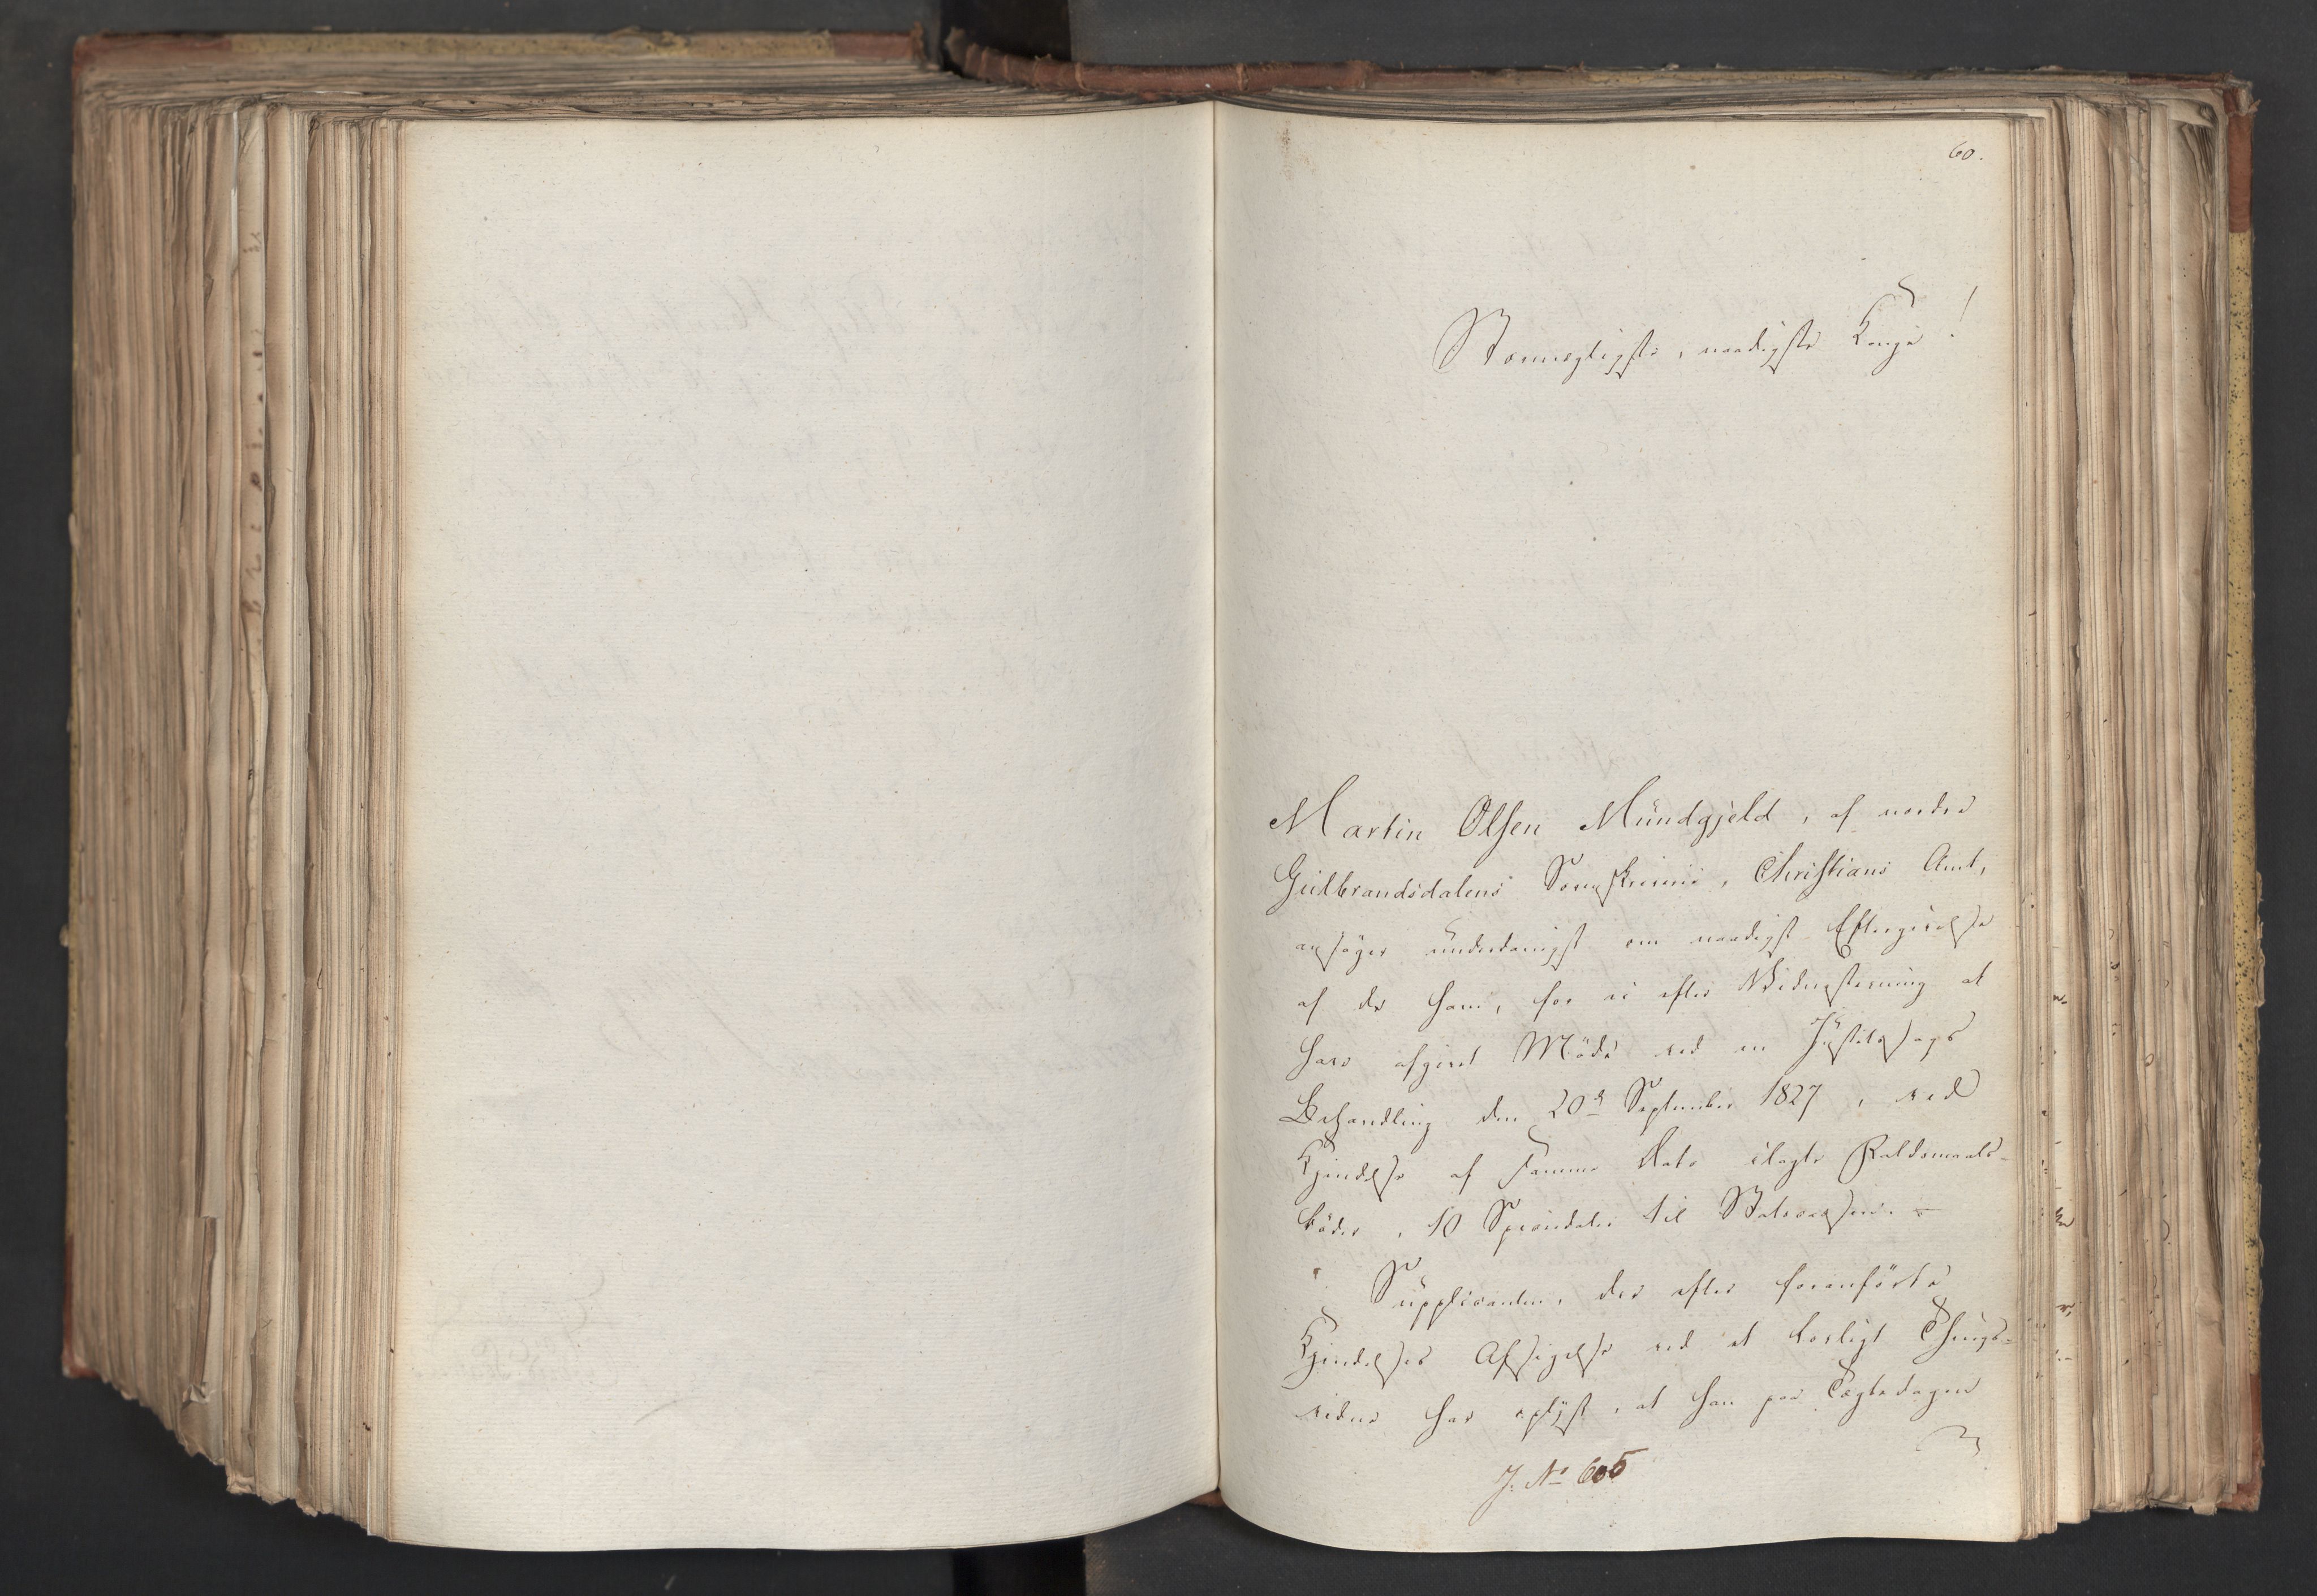 60.
Stormægtigste, naadigste Konge!
Martin Olsen Mündgjeld, af nordre
Gülbrandsdalens Sorenskriverie, Christians Amt,
ansøger ünderdanigst om naadigst Eftergivelse
af de ham, for ei efter Widnestevning at
have afgivet Møde ved en Jüstitssags
Behandling den 20de September 1827, ved
Kjendelse af samme Dato ilagte Faldsmaals-
bøder, 10 Speciedaler til Statscassen. –
Süpplicanten, der efter foranførte
Kjendelses Afsigelse ved et lovligt Things-
vidne har oplyst, at han paa Tægtedagen
J. No 605